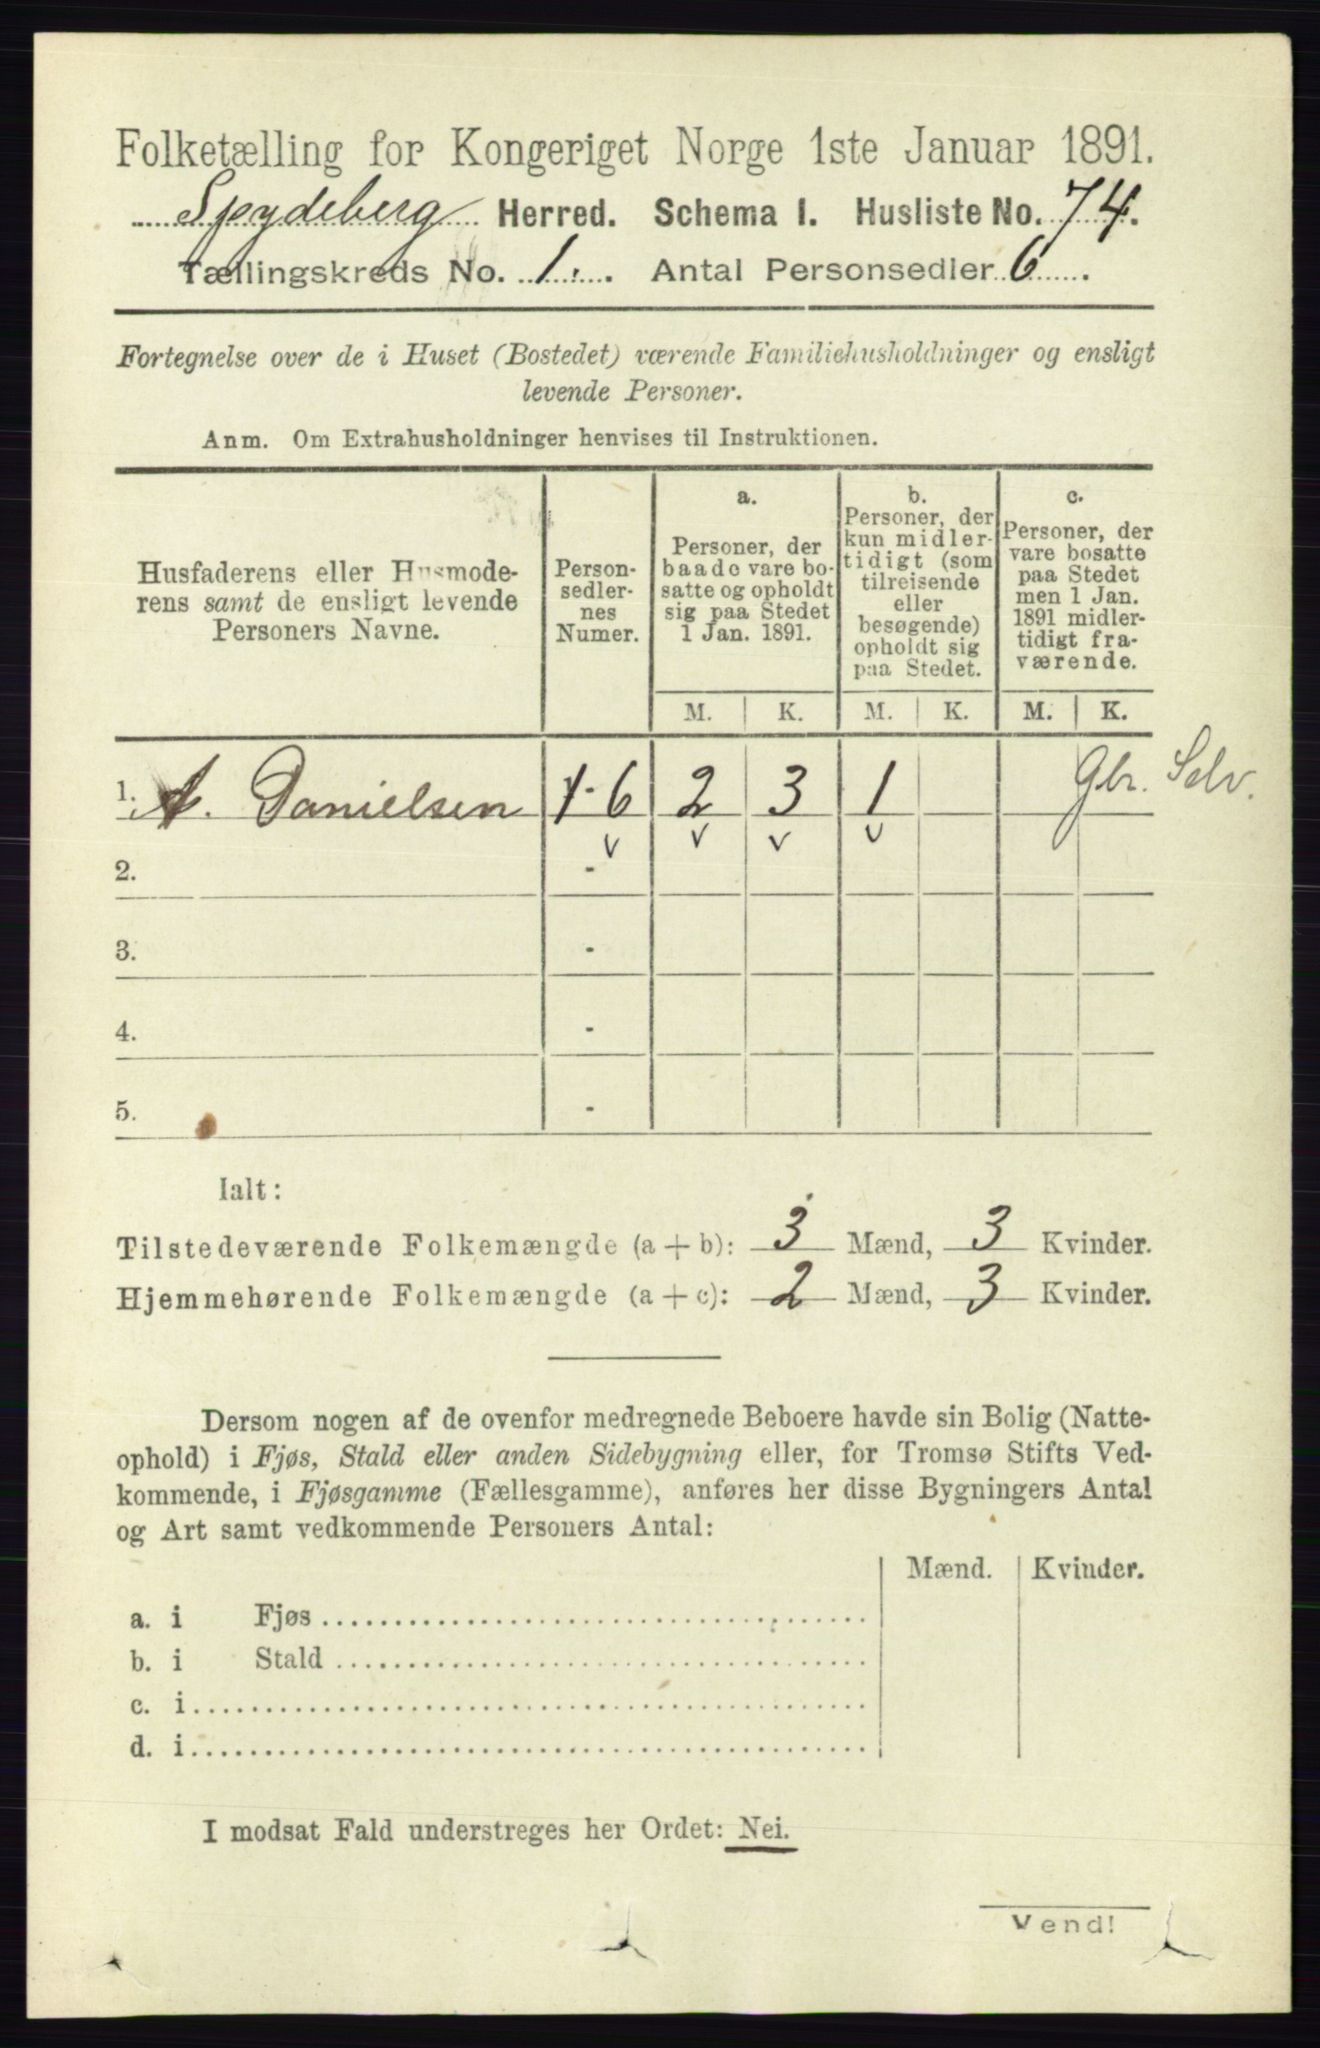 Folketælling for Kongeriget Norge 1ste Januar 1891.
Spydeberg Herred. Schema I. Husliste No. 74.
Tællingskreds No. 1. Antal Personsedler 6.
Fortegnelse over de i Huset (Bostedet) værende Familiehusholdninger og ensligt
levende Personer.
Anm. Om Extrahusholdninger henvises til Instruktionen.
Husfaderens eller Husmode-
rens samt de ensligt levende
Personers Navne.
Person-
sedler-
nes
Numer.
a.
Personer, der
baade vare bo-
satte og opholdt
sig paa Stedet
1 Jan. 1891.
b.
Personer, der
kun midler-
tidigt (som
tilreisende
eller
besøgende)
opholdt sig
paa Stedet.
c.
Personer, der
vare bosatte
paa Stedet
men 1 Jan.
1891 midler-
tidigt fra-
værende.
M. K. M. K. M. K.
1. A. Danielsen 1-6 2 3 1 Gbr. Selv.
v v v v
2. -
3. -
4. -
5. -
Ialt:
Tilstedeværende Folkemængde (a + b): 3 Mænd, 3 Kvinder.
Hjemmehørende Folkemængde (a + c): 2 Mænd, 3 Kvinder.
Dersom nogen af de ovenfor medregnede Beboere havde sin Bolig (Natte-
ophold) i Fjøs, Stald eller anden Sidebygning eller, for Tromsø Stifts Ved-
kommende, i Fjøsgamme (Fællesgamme), anføres her disse Bygningers Antal
og Art samt vedkommende Personers Antal:
Mænd. Kvinder.
a. i Fjøs
b. i Stald
c. i
d. i
I modsat Fald understreges her Ordet: Nei.
Vend!